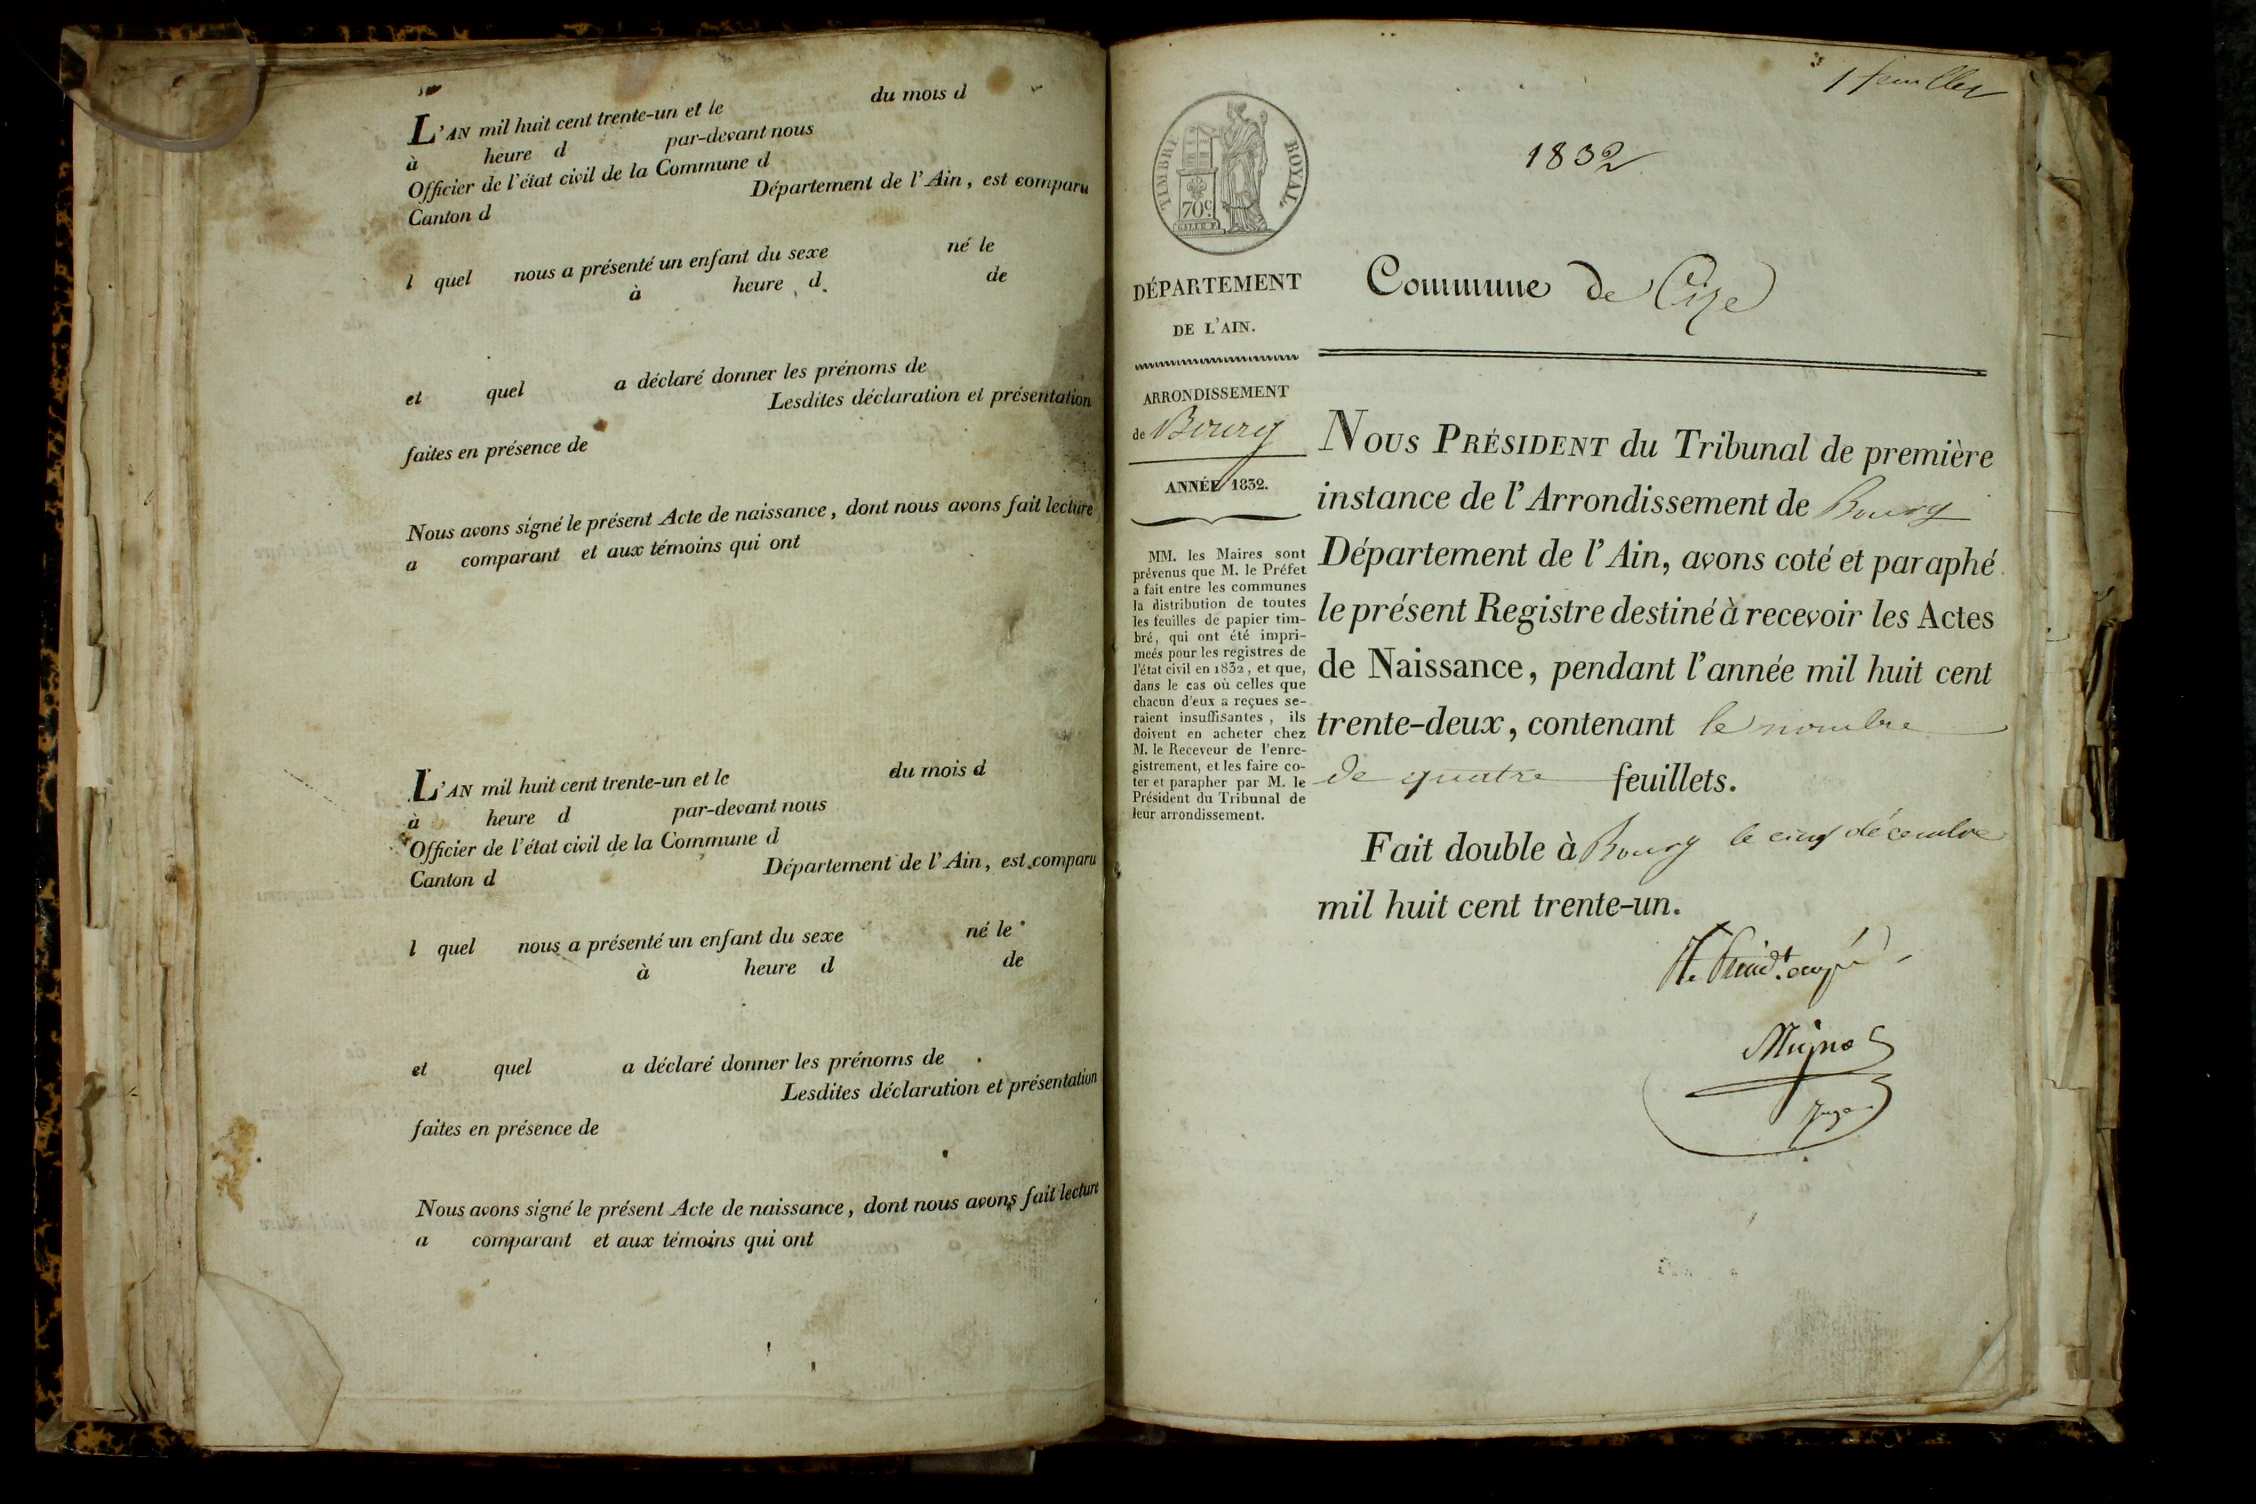 L'AN mil huit cent trente-un et le du mois d
à heure d par-devant nous
Officier de l'état civil de la Commune d
Canton d Département de l'Ain, est comparu
l quel nous a présenté un enfant du sexe né le
à heure d de
et quel a déclaré donner les prénoms de
Lesdites déclaration et présentation
faites en présence de
Nous avons signé le présent Acte de naissance, dont nous avons fait lecture
a comparant et aux témoins qui ont
L'AN mil huit cent trente-un et le du mois d
à heure d par-devant nous
Officier de l'état civil de la Commune d
Canton d Département de l'Ain, est comparu
l quel nous a présenté un enfant du sexe né le
à heure d de
et quel a déclaré donner les prénoms de
Lesdites déclaration et présentation
faites en présence de
Nous avons signé le présent Acte de naissance, dont nous avons fait lecture
a comparant et aux témoins qui ont
1 feuillet
1832
TIMBRE ROYAL
70c
DÉPARTEMENT
DE L'AIN.
ARRONDISSEMENT
de Bourg
ANNÉE 1832.
MM. les Maires sont
prévenus que M. le Préfet
a fait entre les communes
la distribution de toutes
les feuilles de papier tim-
bré, qui ont été impri-
meés pour les registres de
l'état civil en 1832, et que,
dans le cas où celles que
chacun d'eux a reçues se-
raient insuffisantes, ils
doivent en acheter chez
M. le Receveur de l'enre-
gistrement, et les faire co-
ter et parapher par M. le
Président du Tribunal de
leur arrondissement.
Commune de Cize
NOUS PRÉSIDENT du Tribunal de première
instance de l'Arrondissement de Bourg
Département de l'Ain, avons coté et paraphé
le présent Registre destiné à recevoir les Actes
de Naissance, pendant l'année mil huit cent
trente-deux, contenant le nombre
de quatre feuillets.
Fait double à Bourg le cinq décembre
mil huit cent trente-un.
Juge